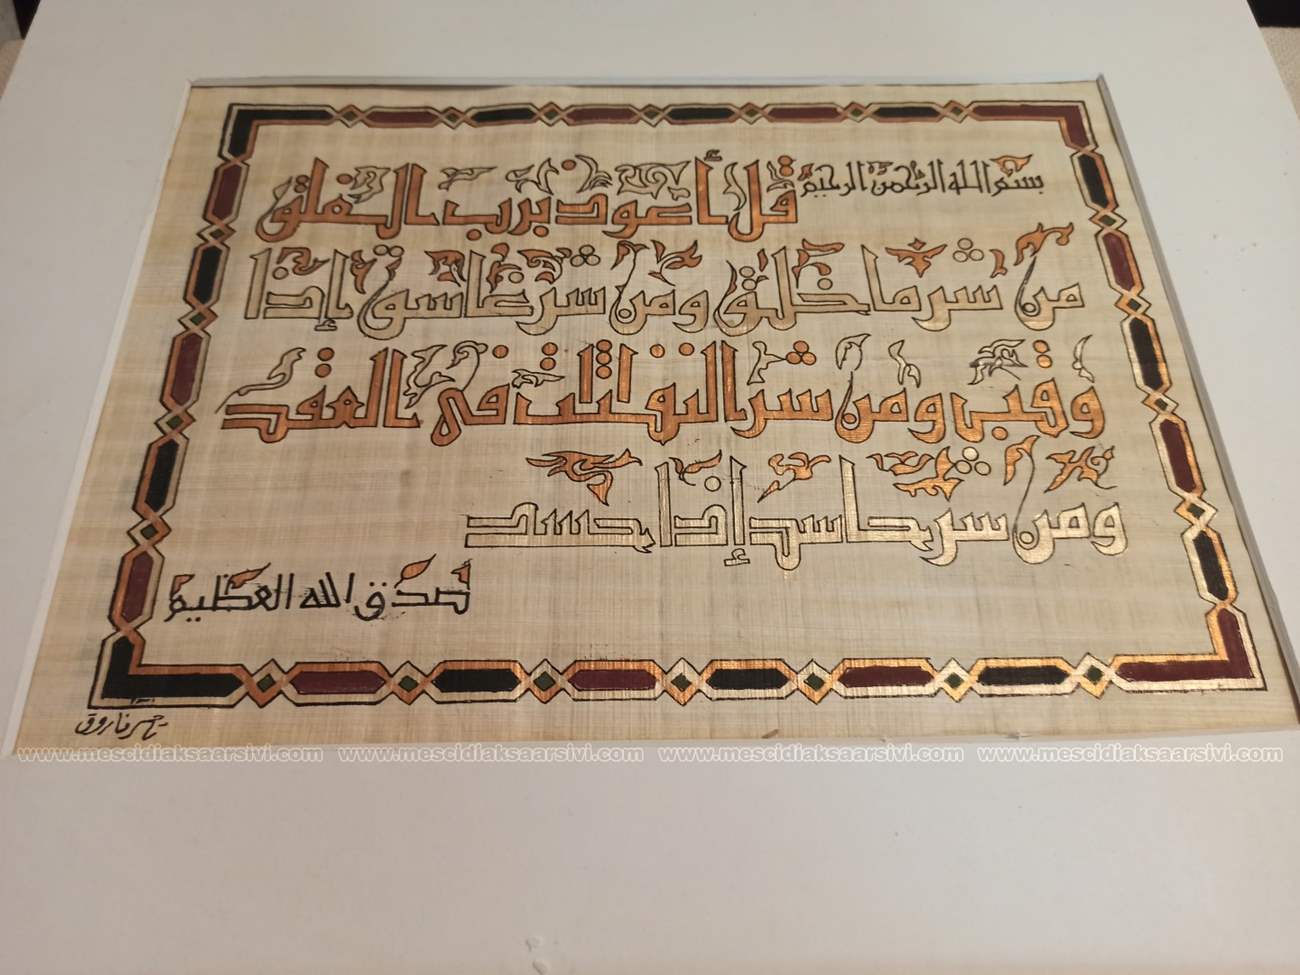 بسم الله الرحمن الرحيم قل أعوذ برب الفلق
من شر ما خلق ومن شر غاسق إذا
وقب ومن شر النفاثات في العقد
ومن شر حاسد إذا حسد
صدق الله العظيم
www.mescidiaksaarsivi.com www.mescidiaksaarsivi.com www.mescidiaksaarsivi.com www.mescidiaksaarsivi.com